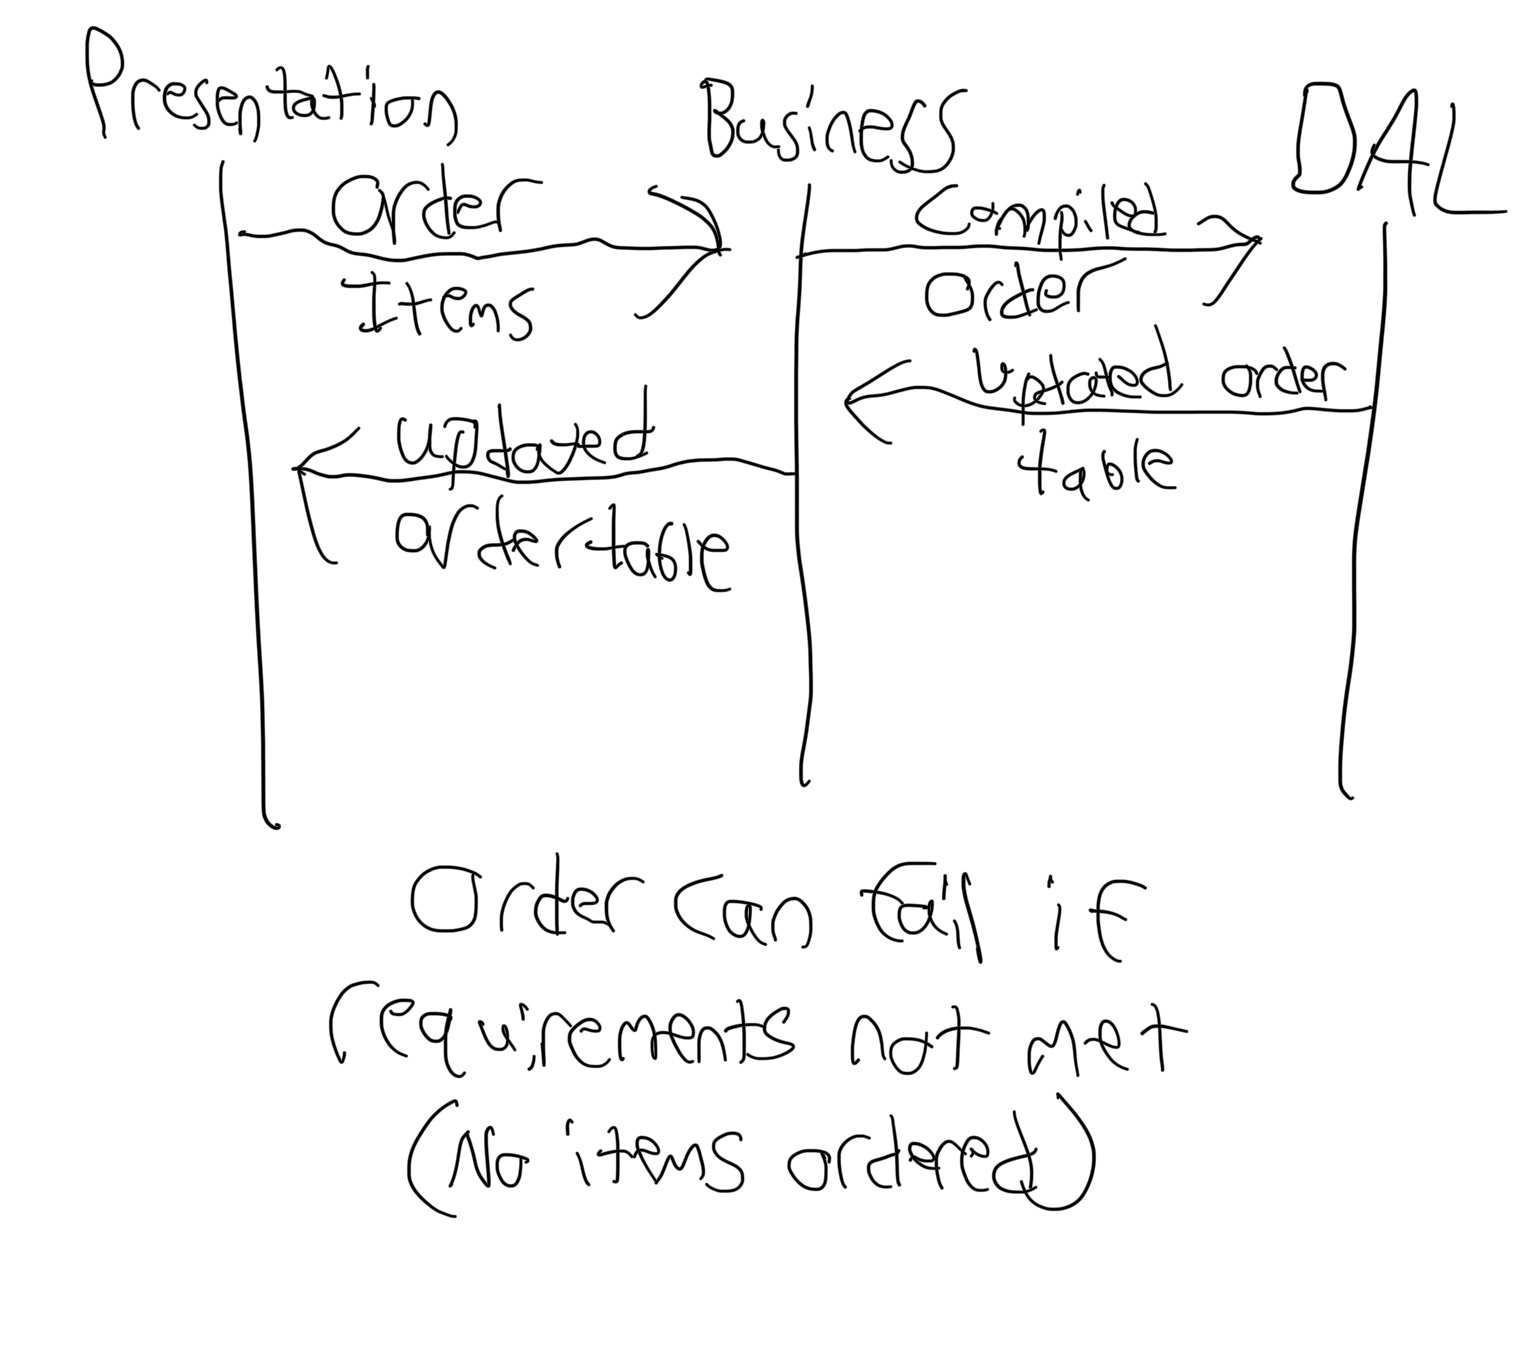 Presentation
Business
DAL
Order
Items
Compiled
Order
Updated order
table
updated
order table
Order can fail if
requirements not met
(No items ordered)